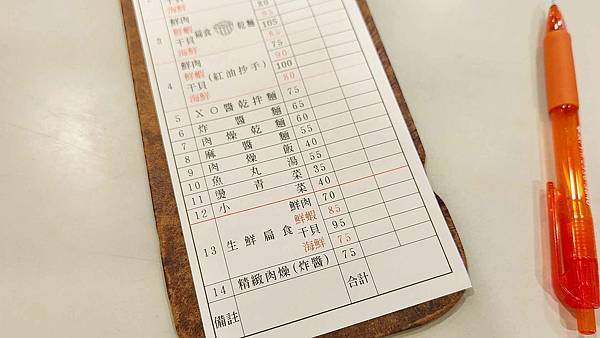 海鮮
3 扁食 乾麵
鮮肉 80
鮮蝦
干貝 105
海鮮 85
4 (紅油抄手)
鮮肉 75
鮮蝦 90
干貝 100
海鮮 80
5 XO醬乾拌麵 75
6 炸醬麵 65
7 肉燥乾麵 60
8 麻醬麵 55
9 肉燥飯 40
10 魚丸湯 55
11 燙青菜 35
12 小菜 40
13 生鮮扁食
鮮肉 70
鮮蝦 85
干貝 95
海鮮 75
14 精緻肉燥(炸醬) 75
備註 合計